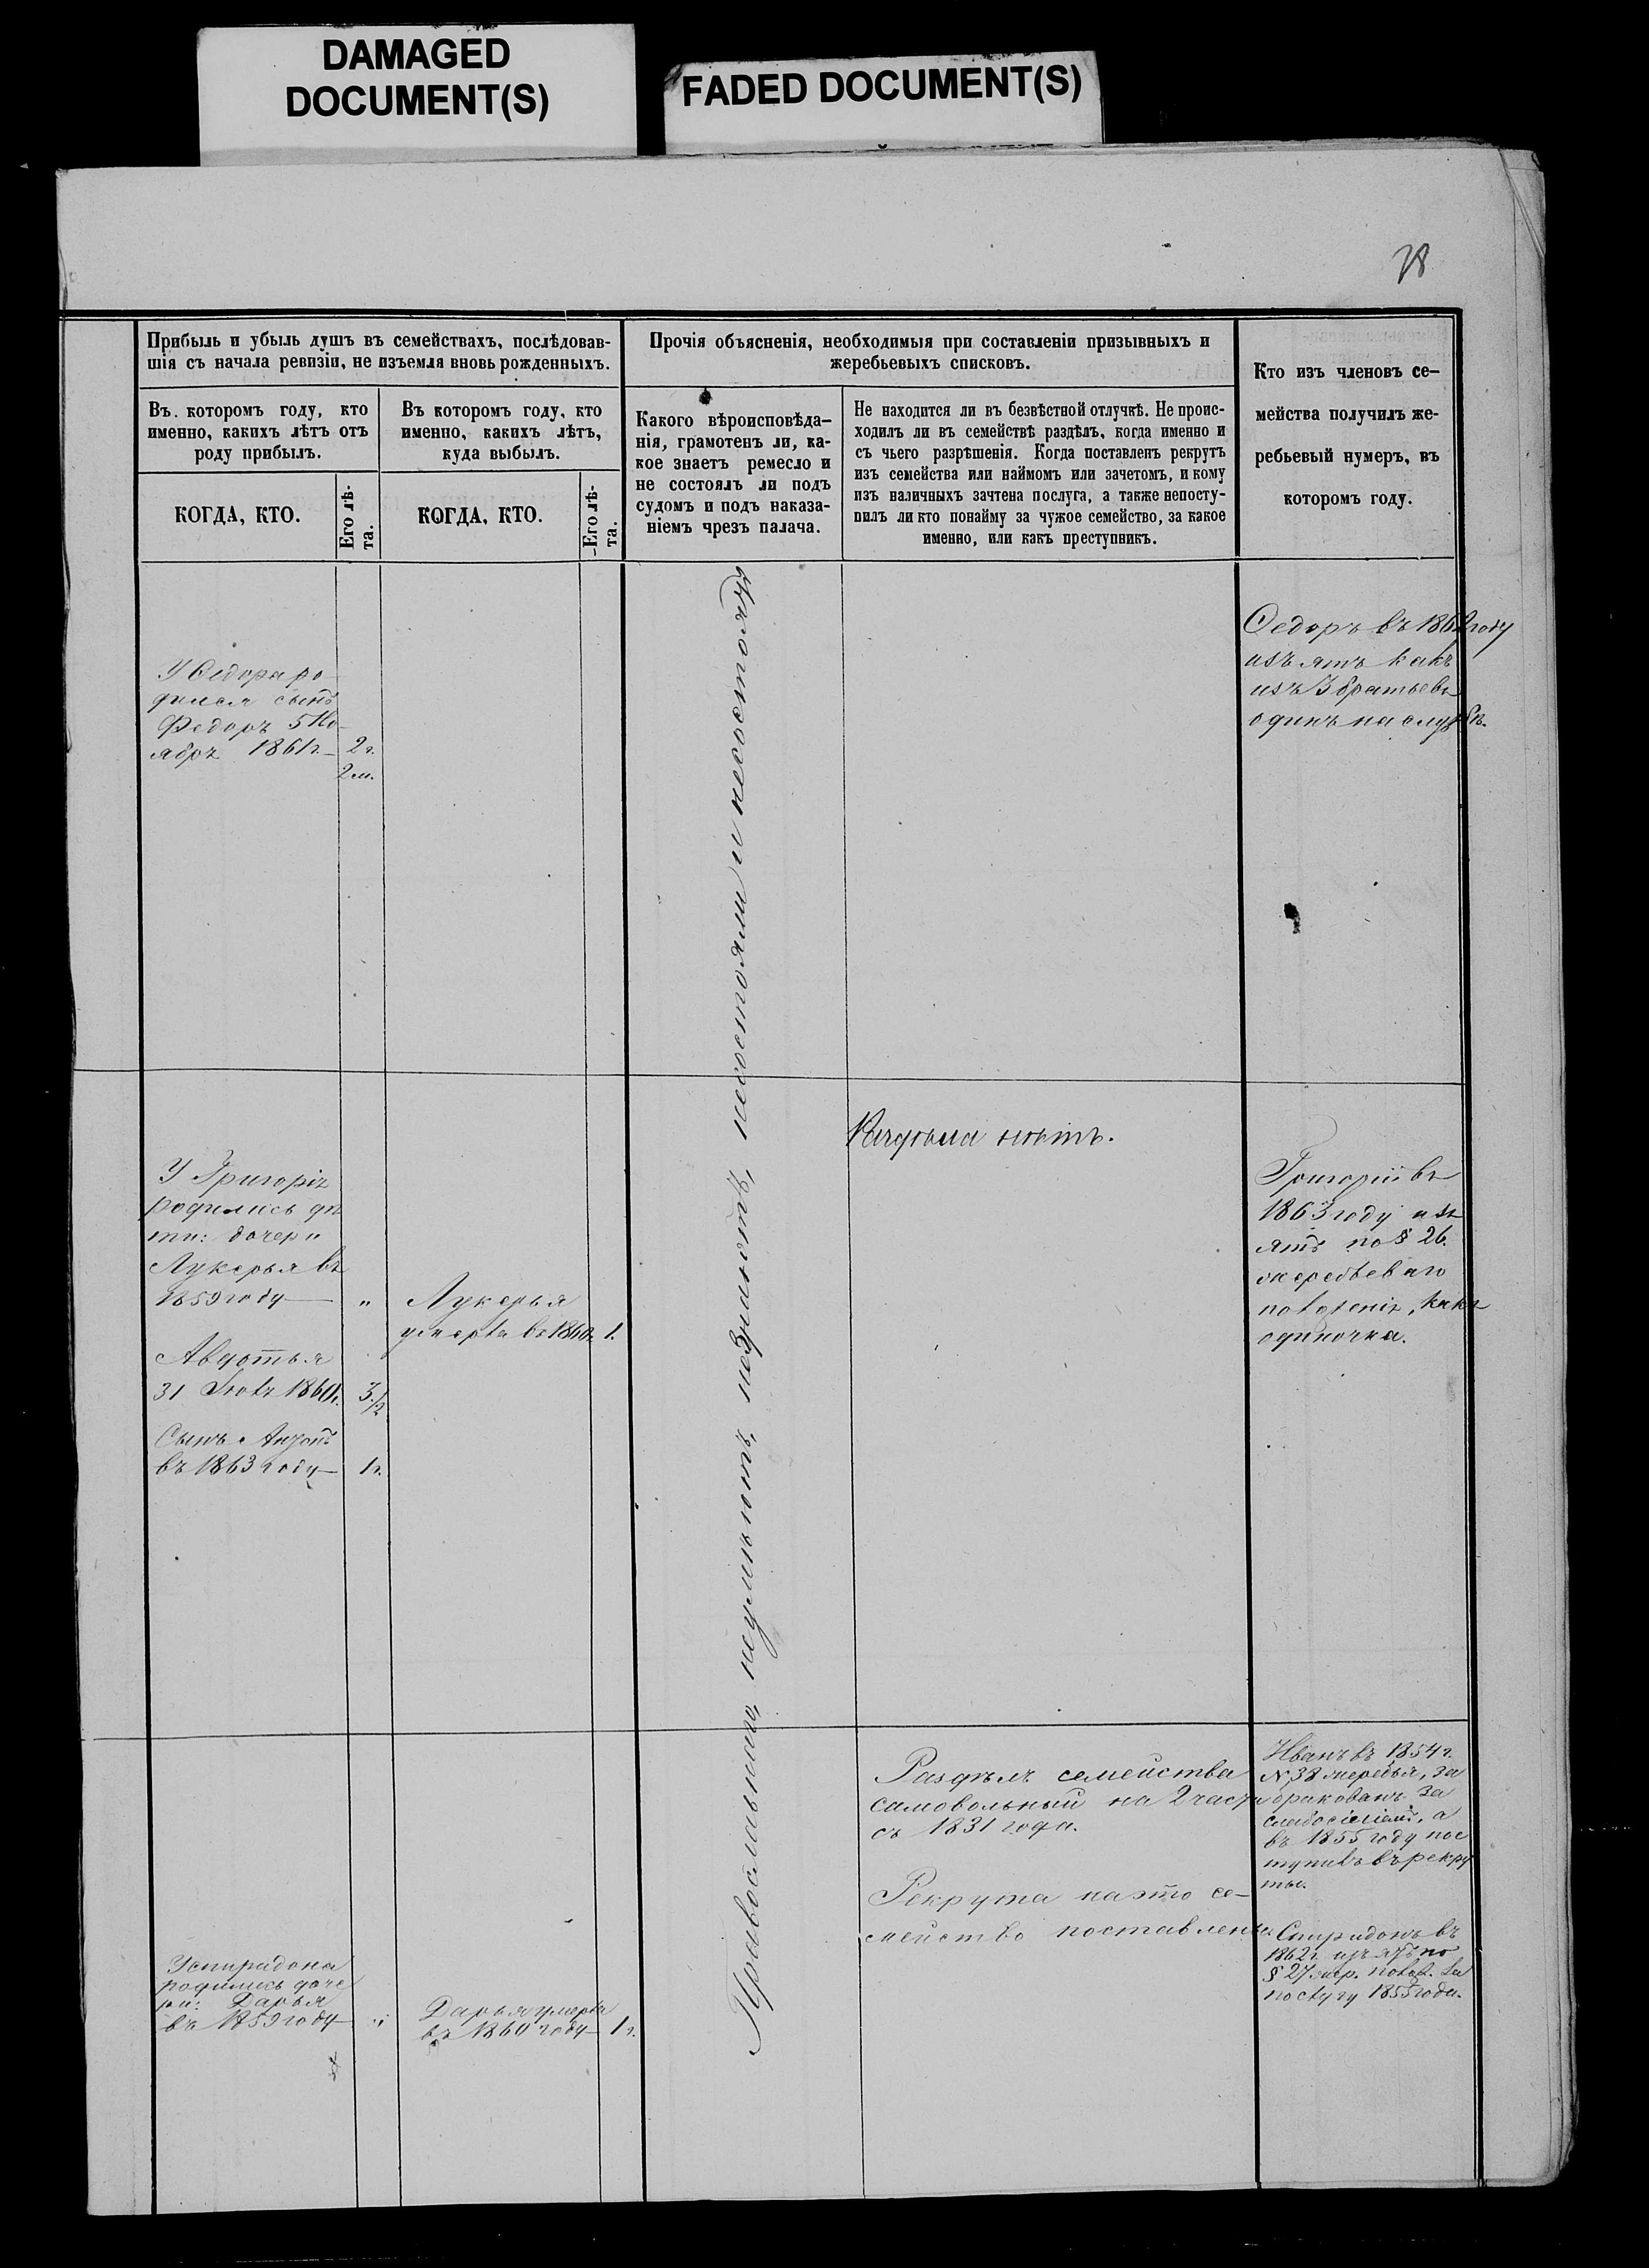 DAMAGED
DOCUMENT(S)
FADED DOCUMENT(S)
78
Прибыль и убыль душъ въ семействахъ, послѣдовав-
шія съ начала ревизіи, не изъемля вновь рожденныхъ.
Въ которомъ году, кто
именно, какихъ лѣтъ отъ
роду прибылъ.
КОГДА, КТО.
Его лѣ-
та.
Въ которомъ году, кто
именно, какихъ лѣтъ,
куда выбылъ.
КОГДА, КТО.
Его лѣ-
та.
Прочія объясненія, необходимыя при составленіи призывныхъ и
жеребьевыхъ списковъ.
Какого вѣроисповѣда-
нія, грамотенъ ли, ка-
кое знаетъ ремесло и
не состоялъ ли подъ
судомъ и подъ наказа-
ніемъ чрезъ палача.
Не находится ли въ безвѣстной отлучкѣ. Не проис-
ходилъ ли въ семействѣ раздѣлъ, когда именно и
съ чьего разрѣшенія. Когда поставленъ рекрутъ
изъ семейства или наймомъ или зачетомъ, и кому
изъ наличныхъ зачтена послуга, а также непосту-
пилъ ли кто понайму за чужое семейство, за какое
именно, или какъ преступникъ.
Кто изъ членовъ се-
мейства получилъ же-
ребьевый нумеръ, въ
котором году.
У Ѳедора ро
дился сынъ
Федоръ 5 Но-
ябрѣ 1861 г. 2 г.
2 м.
Ѳедоръ въ 1862 году
изъятъ какъ
изъ 3 братьевъ
одинъ на службѣ.
Православнаго, неумѣютъ, незнаютъ, несостояли и несостоятъ
У Григорія
родились дѣ
ти: дочери
Лукерья въ
1859 году "
Авдотья
31 1860 г. 3 1/2
Сынъ Антонъ
въ 1863 году 1 г.
Лукерья
умерла въ 1860 1.
Раздѣла нѣтъ.
Григорій въ
1863 году изъ
ятъ по § 26.
жеребьеваго
положенія, какъ
одиночка.
У Спиридона
родились доче
ри: Дарья
въ 1859 году "
Дарья умерла
въ 1860 году 1 г.
Раздѣлъ семейства
самовольный на 2 части
съ 1831 года.
Рекрута на это се-
мейство поставлены
Иванъ въ 1854 г.
№ 38 жеребья, за
бракованъ за
слабосиліемъ, а
въ 1855 году пос
тупилъ въ рекру
ты.
Спиридонъ въ
1862 г. изъятъ по
§ 27 жер. полож. за
послугу 1855 года.